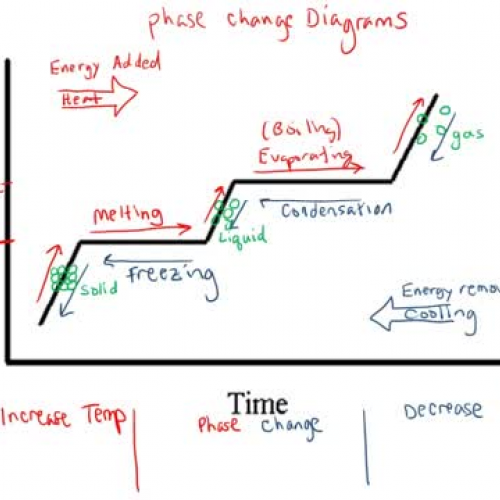 phase change Diagrams
Energy Added
Heat
(Boiling)
Evaporating
gas
Melting
Condensation
Liquid
Freezing
Solid
Energy remov
Cooling
Time
Increase Temp
Phase change
Decrease